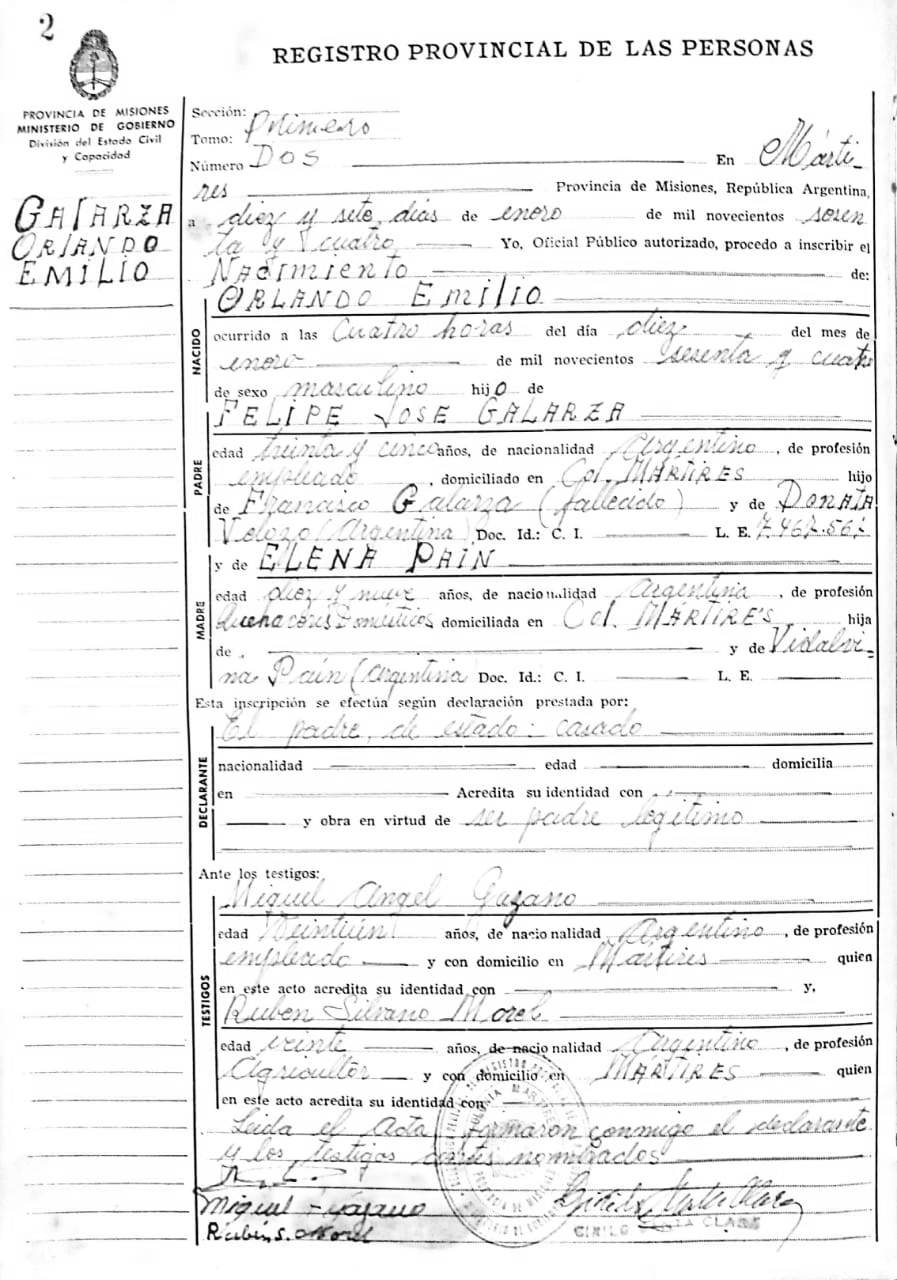 2
REGISTRO PROVINCIAL DE LAS PERSONAS
PROVINCIA DE MISIONES
MINISTERIO DE GOBIERNO
División del Estado Civil
y Capacidad
GALARZA
ORLANDO
EMILIO
Sección:
Tomo: Primero
Número DOS En Márti-
res Provincia de Misiones, República Argentina,
a diez y sete días de enero de mil novecientos sesen
ta y cuatro Yo, Oficial Público autorizado, procedo a inscribir el
Nacimiento de:
NACIDO
ORLANDO EMILIO
ocurrido a las Cuatro horas del día diez del mes de
enero de mil novecientos sesenta y cuatro
de sexo masculino hijo de
PADRE
FELIPE JOSE GALARZA
edad treinta y cinco años, de nacionalidad Argentino, de profesión
empleado, domiciliado en Col. MÁRTIRES hijo
de Francisco Galarza (fallecido) y de DONATA
Velozo (Argentina) Doc. Id.: C. I. L. E. 7.467.567
MADRE
y de ELENA PAIN
edad diez y nueve años, de nacionalidad Argentina, de profesión
Quehaceres Domésticos domiciliada en Col. MÁRTIRES hija
de y de Vidalvi-
na Paín (Argentina Doc. Id.: C. I. L. E.
Esta inscripción se efectúa según declaración prestada por:
DECLARANTE
El padre, de estado: casado
nacionalidad edad domicilia
en Acredita su identidad con
y obra en virtud de ser padre legítimo
Ante los testigos:
TESTIGOS
Miguel Angel Gazano
edad Veintiún años, de nacionalidad Argentino, de profesión
empleado y con domicilio en Mártires quien
en este acto acredita su identidad con y,
Ruben Silvano Morel
edad veinte años, de nacionalidad Argentino, de profesión
Agricultor y con domicilio en MÁRTIRES quien
en este acto acredita su identidad con
Leida el Acta firmaron conmigo el declarante
y los testigos nombrados
Miguel Gazano
Rubén S. Morel
CIRILO COSTA CLARA